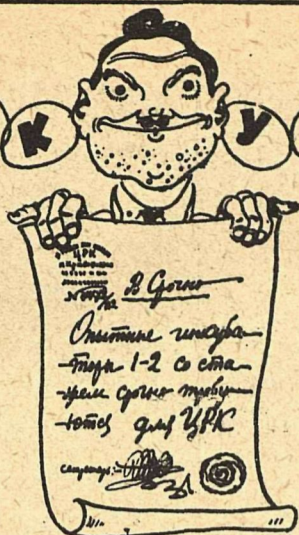 К У
ЦРК
№
Срочно
Опытные инкуба-
-торы 1-2 со ста-
-жем срочно требу-
-ются для ЦРК
секретарь: